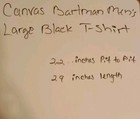 Canvas Bartman men's
Large Black T-Shirt
22 inches Pit to Pit
29 inches length